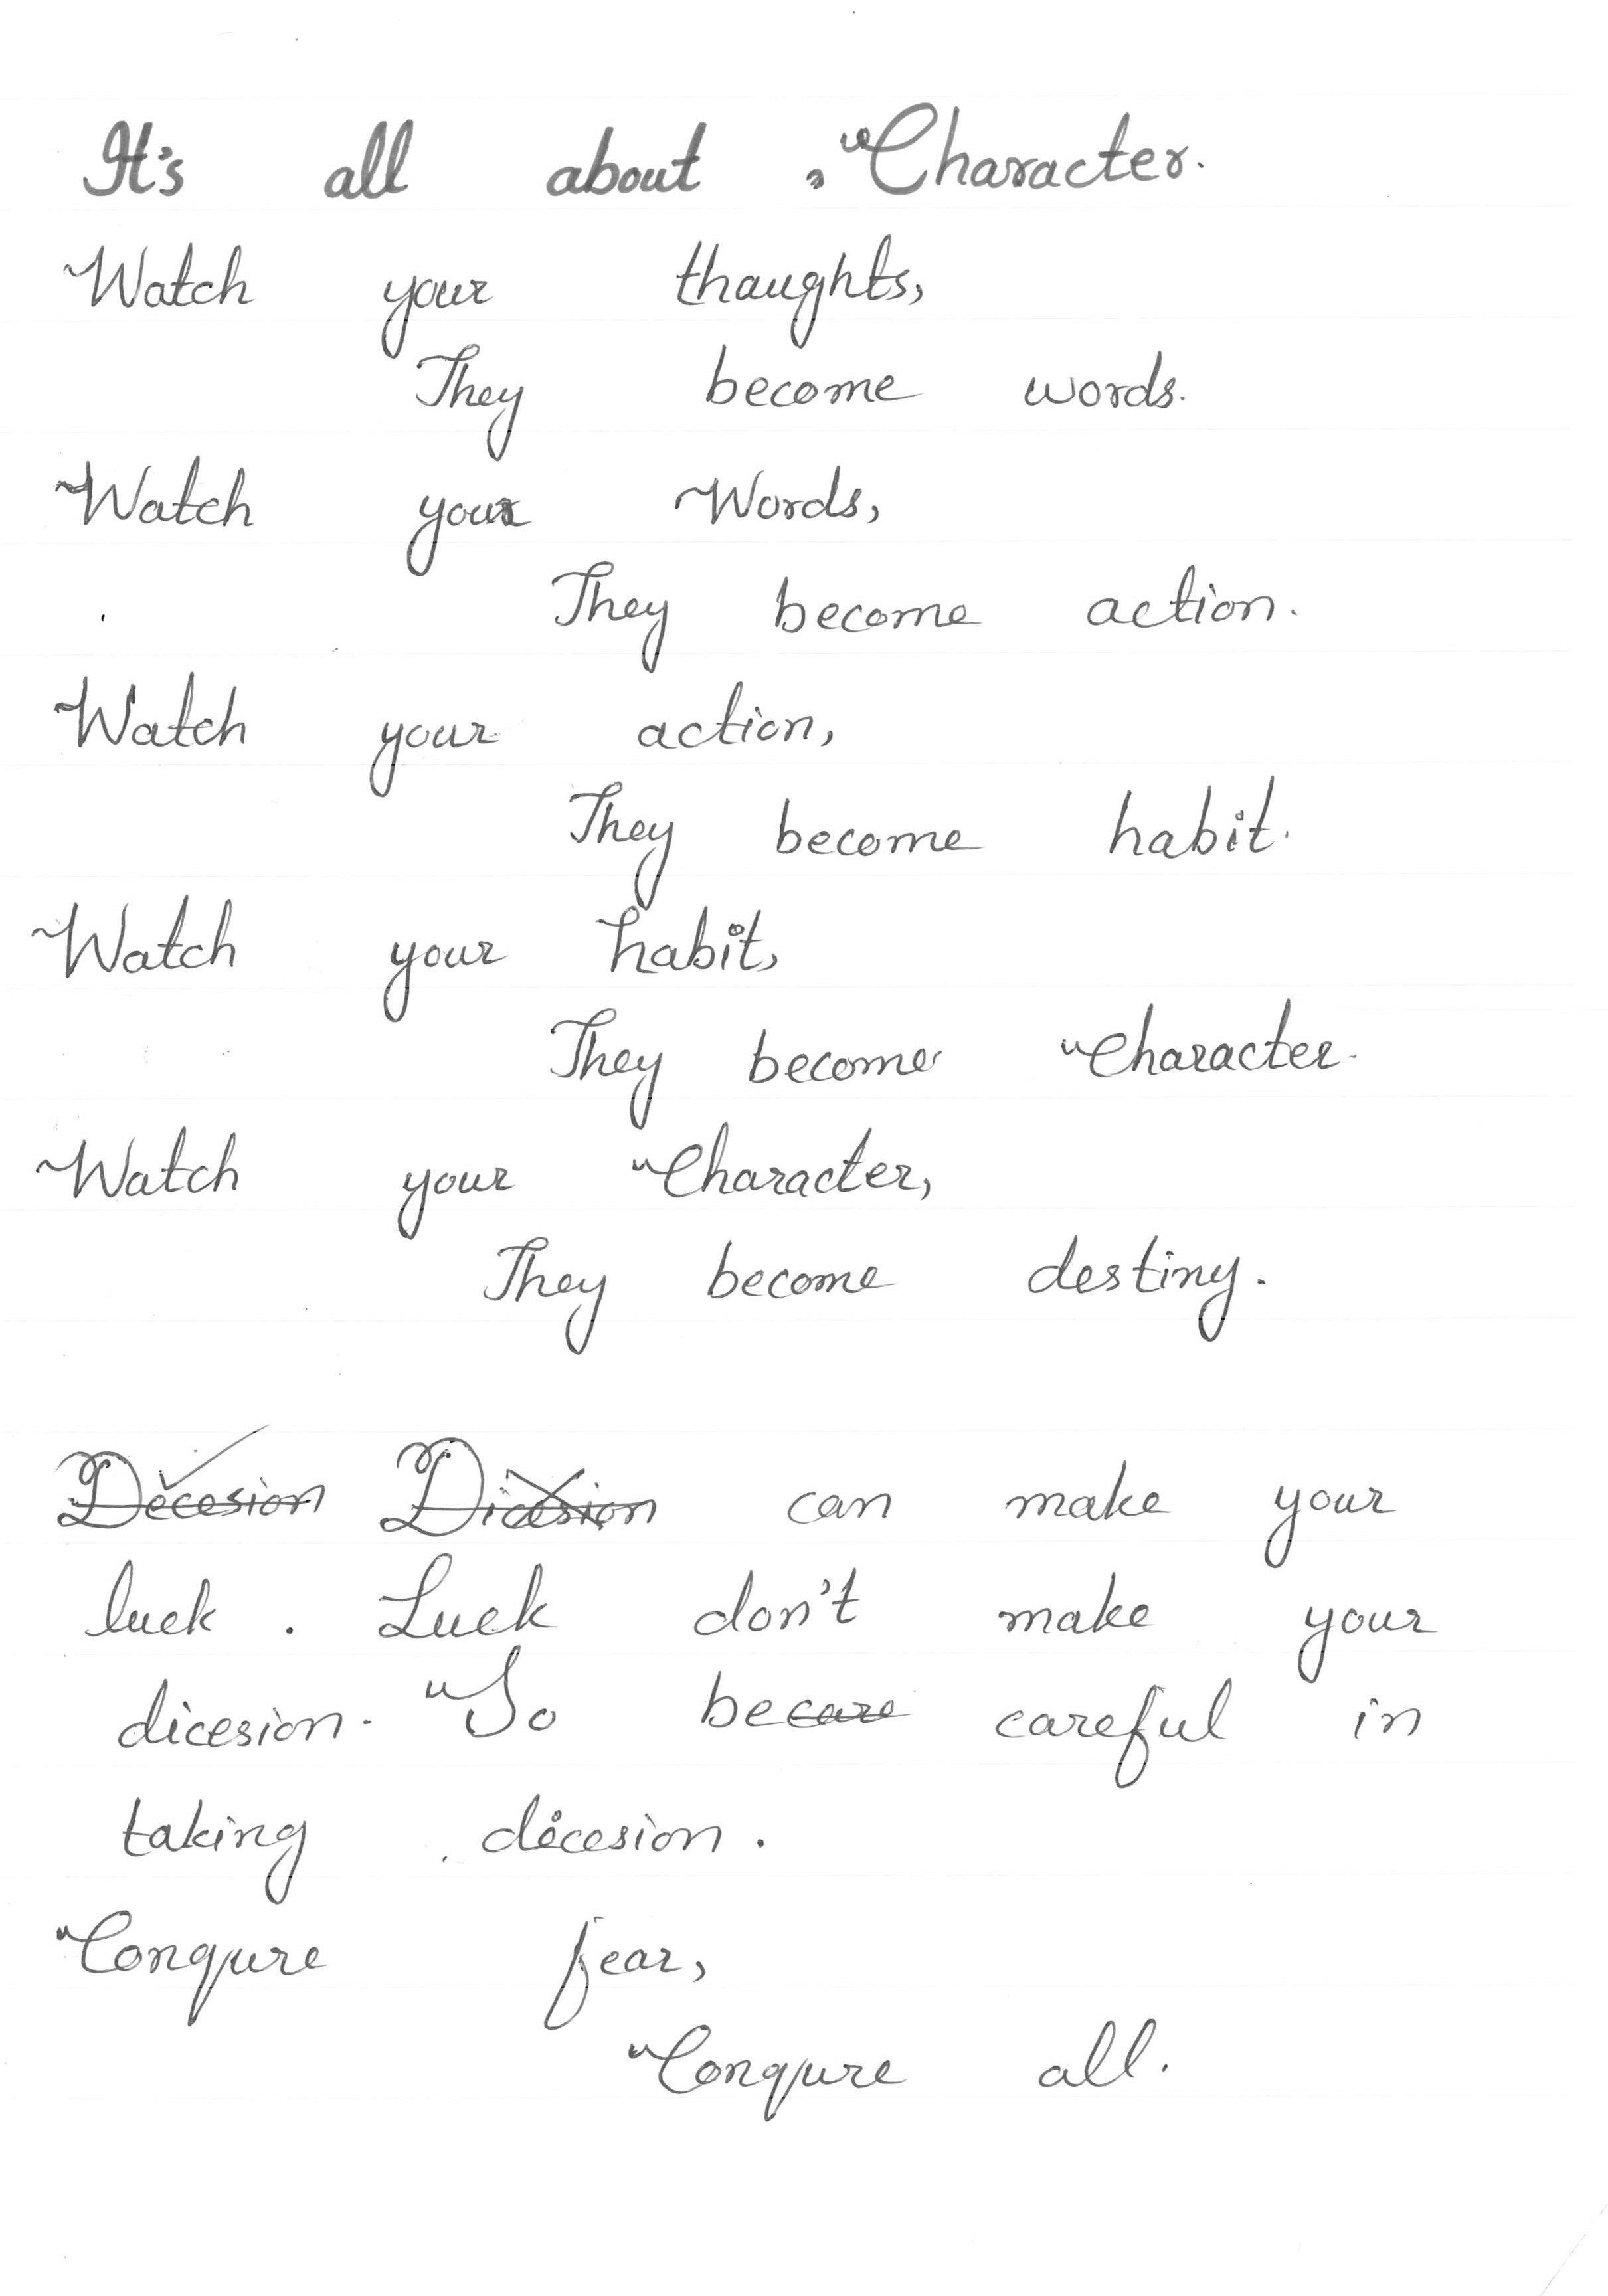 It's all about Character.
Watch your thaughts,
They become words.
Watch your Words,
They become action.
Watch your action,
They become habit.
Watch your habit,
They become Character.
Watch your Character,
They become destiny.
Decesion Dicesion can make your
luck. Luck don't make your
dicesion. So becare careful in
taking dicesion.
Conqure fear,
Conqure all.